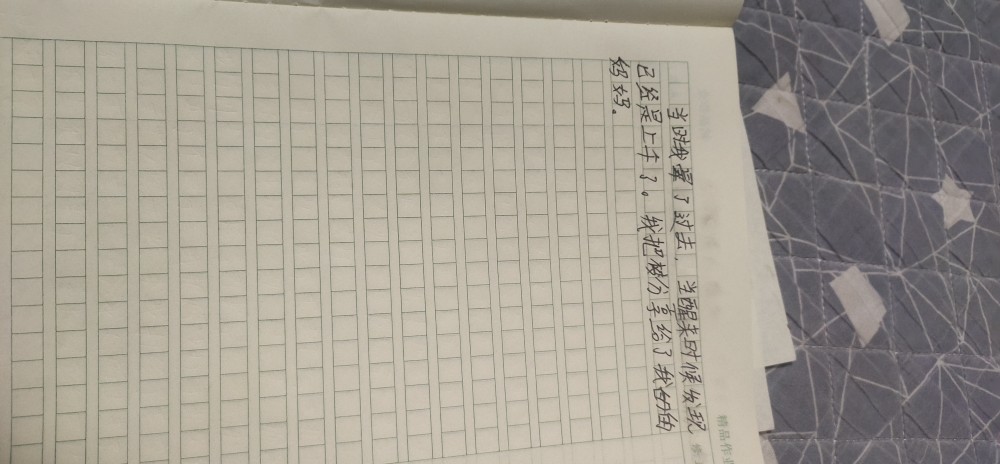 当时我晕了过去，当醒来时候发现
已经是上午了。我把被分享给了我的由
妈妈。
精品作业